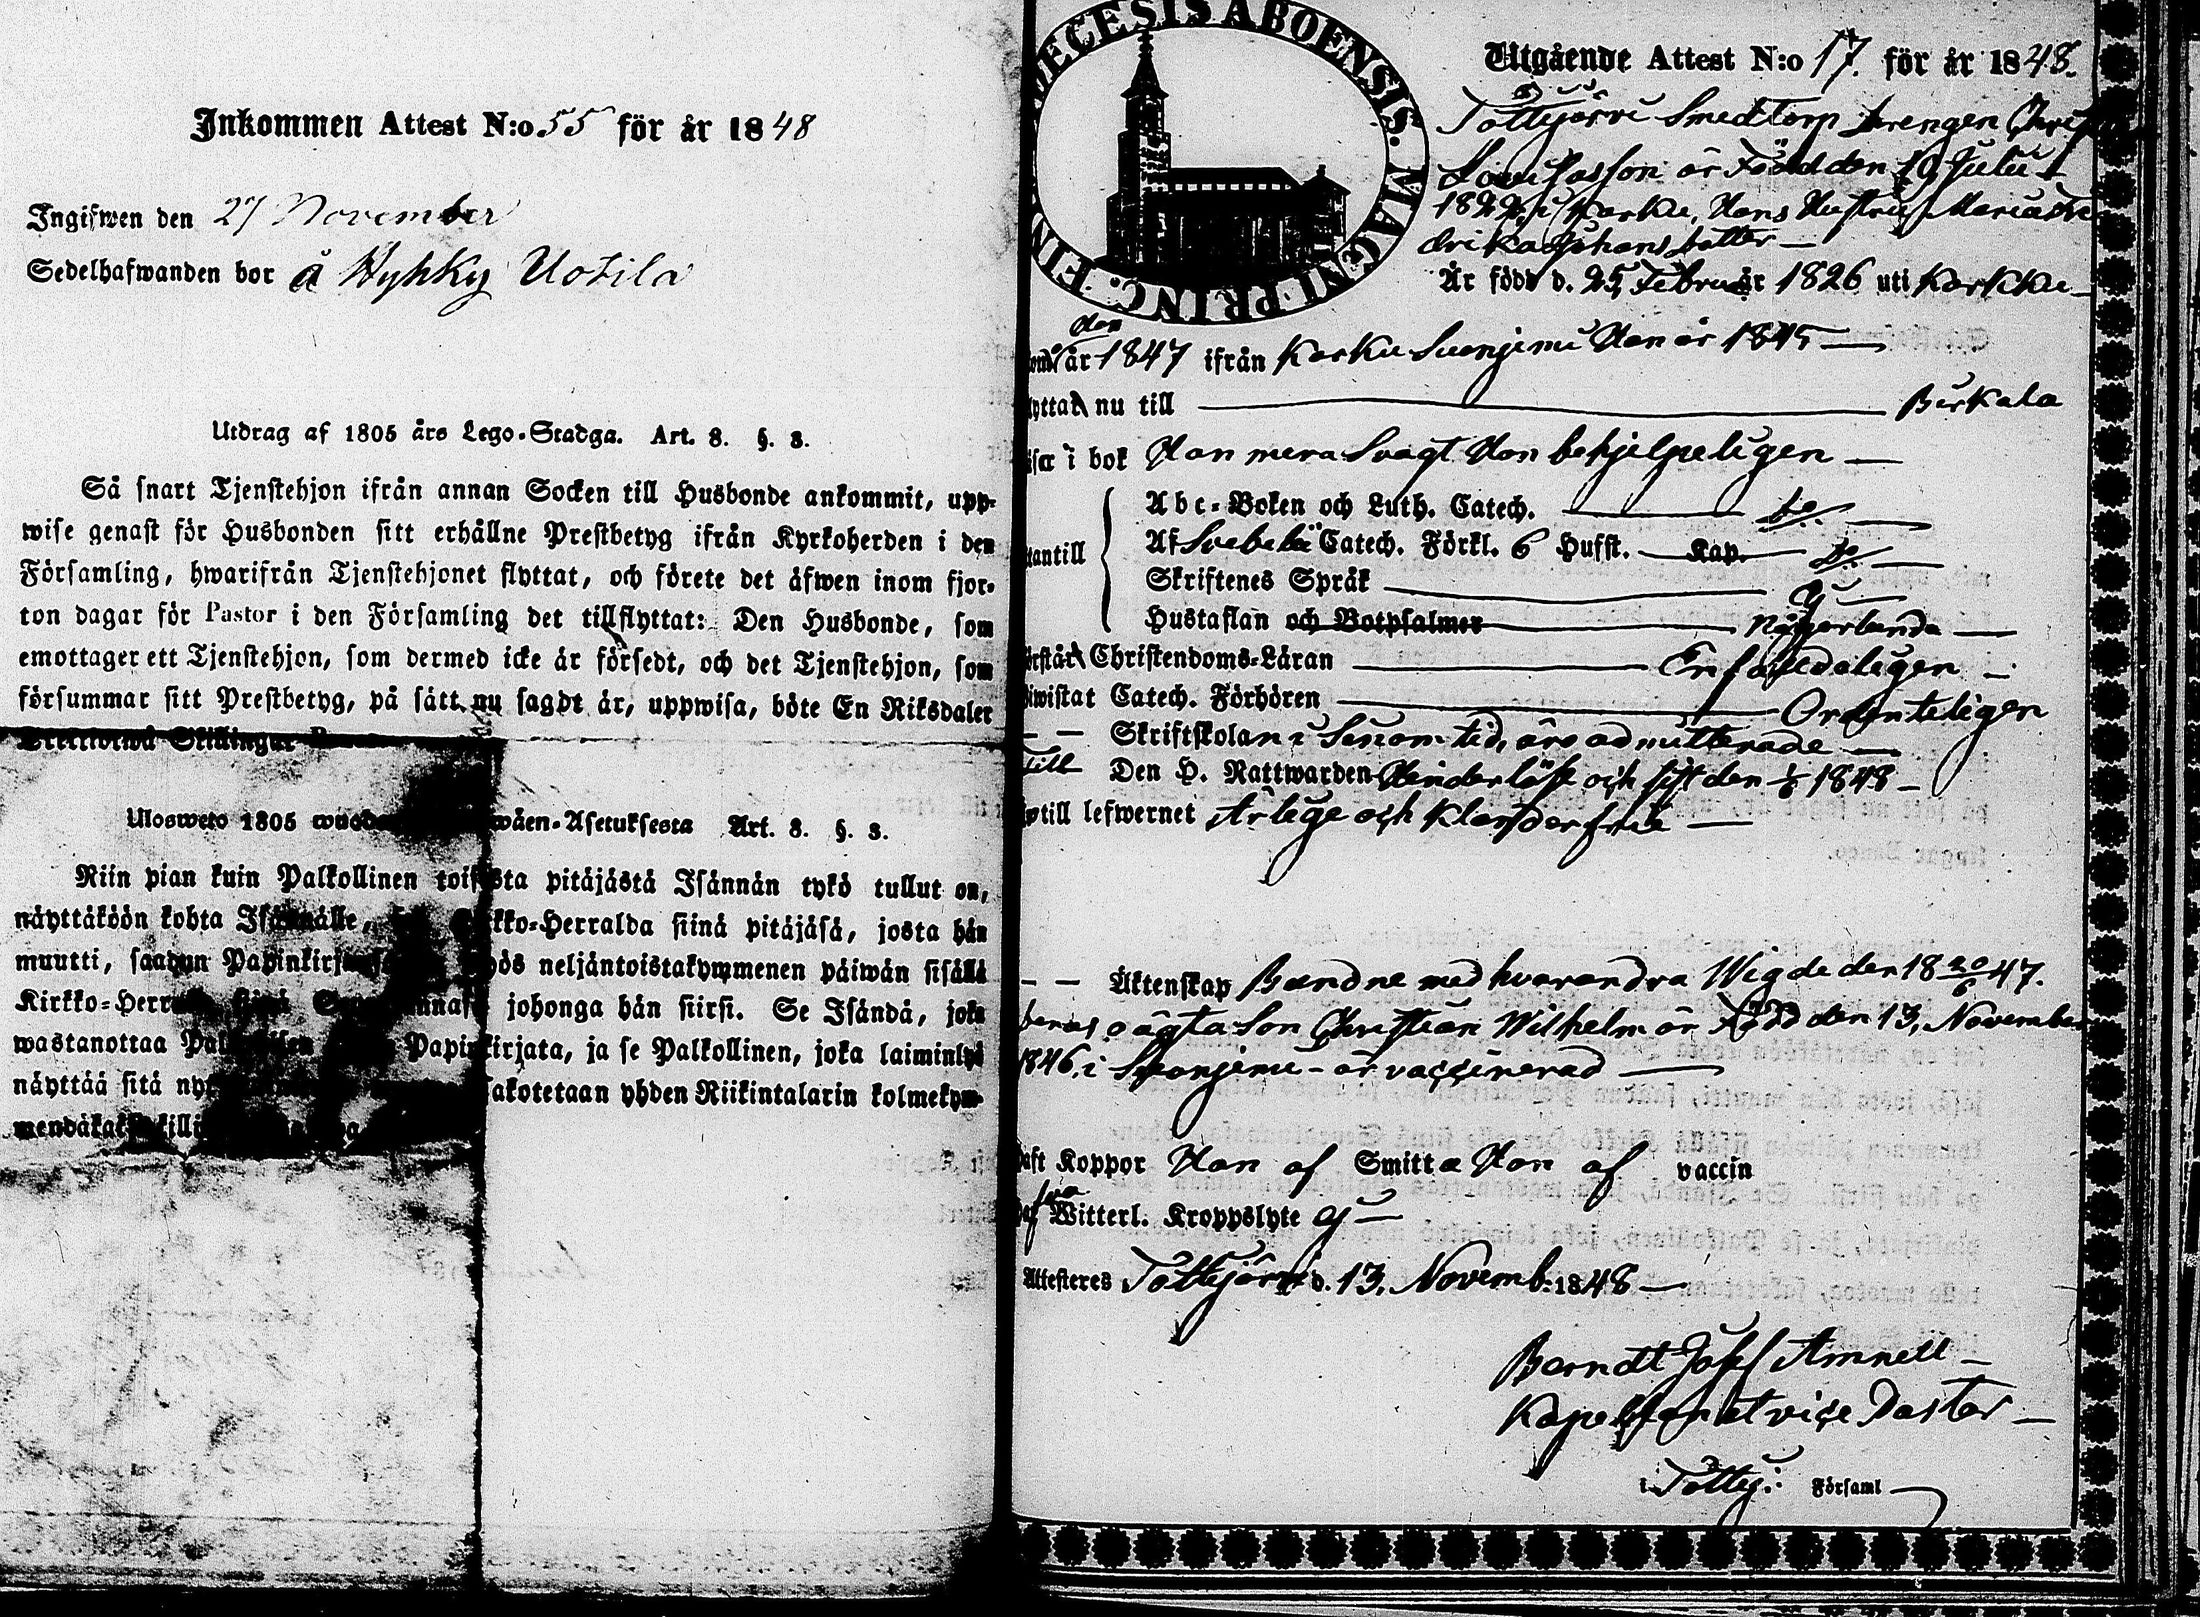 Inkommen Attest N:o 55 för år 1848
Ingifwen den 27 November
Sedelhafwanden bor å Hyhky Uotila
Utdrag af 1805 års Lego-Stadga. Art. 8. §. 3.
Så snart Tjenstehjon ifrån annan Socken till Husbonde ankommit, upp-
wise genast för Husbonden sitt erhållne Prestbetyg ifrån Kyrkoherden i den
Församling, hwarifrån Tjenstehjonet flyttat, och förete det äfwen inom fjor-
ton dagar för Pastor i den Församling det tillflyttat: Den Husbonde, som
emottager ett Tjenstehjon, som dermed icke är försedt, och det Tjenstehjon, som
försummar sitt Prestbetyg, på sätt nu sagdt är, uppwisa, böte En Riksdaler
Trettiotwå Skillingar
Ulosweto 1805 wuoden wäen-Asetuksesta Art. 8. §. 3.
Niin pian kuin Palkollinen toisesta pitäjästä Isännän tykö tullut on,
näyttäköön kohta Isännälle, Kirkko-Herralda siinä pitäjäsä, josta hän
muutti, saadun Papinkirjansa myös neljäntoistakymmenen päiwän sisällä
Kirkko-Herralle siinä Seurakunnasa johonga hän siirsi. Se Isändä, joka
wastanottaa Palkollisen Papinkirjata, ja se Palkollinen, joka laiminlyö
näyttää sitä nyt sakotetaan yhden Riikintalarin kolmekym-
mendäkaksi killi
DIECESIS ABOENSIS. MAGNI PRINC. FIN
Utgående Attest N:o 17. för år 1848.
Tottijärvi Smedtorp Drengen Christ
Lovisasson är Född den 19 Julii
182 i Karku, Hans Hustru Maria Fre
drika Johansdotter —
Är född d. 25 Februar 1826 uti Karkku —
Hon
år 1847 ifrån Karku Suonjemi Han år 1845 —
flyttar nu till — Birkala
Läser i bok Han mera Svagt Hon behjelpeligen —
Utantill
Abc-Boken och Luth. Catech. — do —
Af Svebelii Catech. Förkl. 6 Hufst. — Kap. — do —
Skriftenes Språk — Ej —
Hustaflan och Botpsalmer — Någorlunda —
Förstår Christendoms-Läran — Enfaldeligen —
Biwistat Catech. Förhören — Ordenteligen
— — Skriftskolan i Sinom tid, äro admitterade —
Till Den H. Nattwarden Hinderlöst och sist den 1848 —
till lefwernet Ärlige och Klanderfrie —
— — Äktenskap Bundne med hvarandra Wigde den 18 20/6 47.
Deras oägta Son Christian Wilhelm är Född den 13, November
1846, i Suonjemi — är vaccinerad —
Haft Koppor Han af Smitta Hon af vaccin
Hafva Witterl. Kroppslyte ej —
Attesteres Tottijärvi d. 13, Novemb: 1848 —
Berndt Josef Amnell —
Kapellan et vice Pastor —
i Tottij: Församl